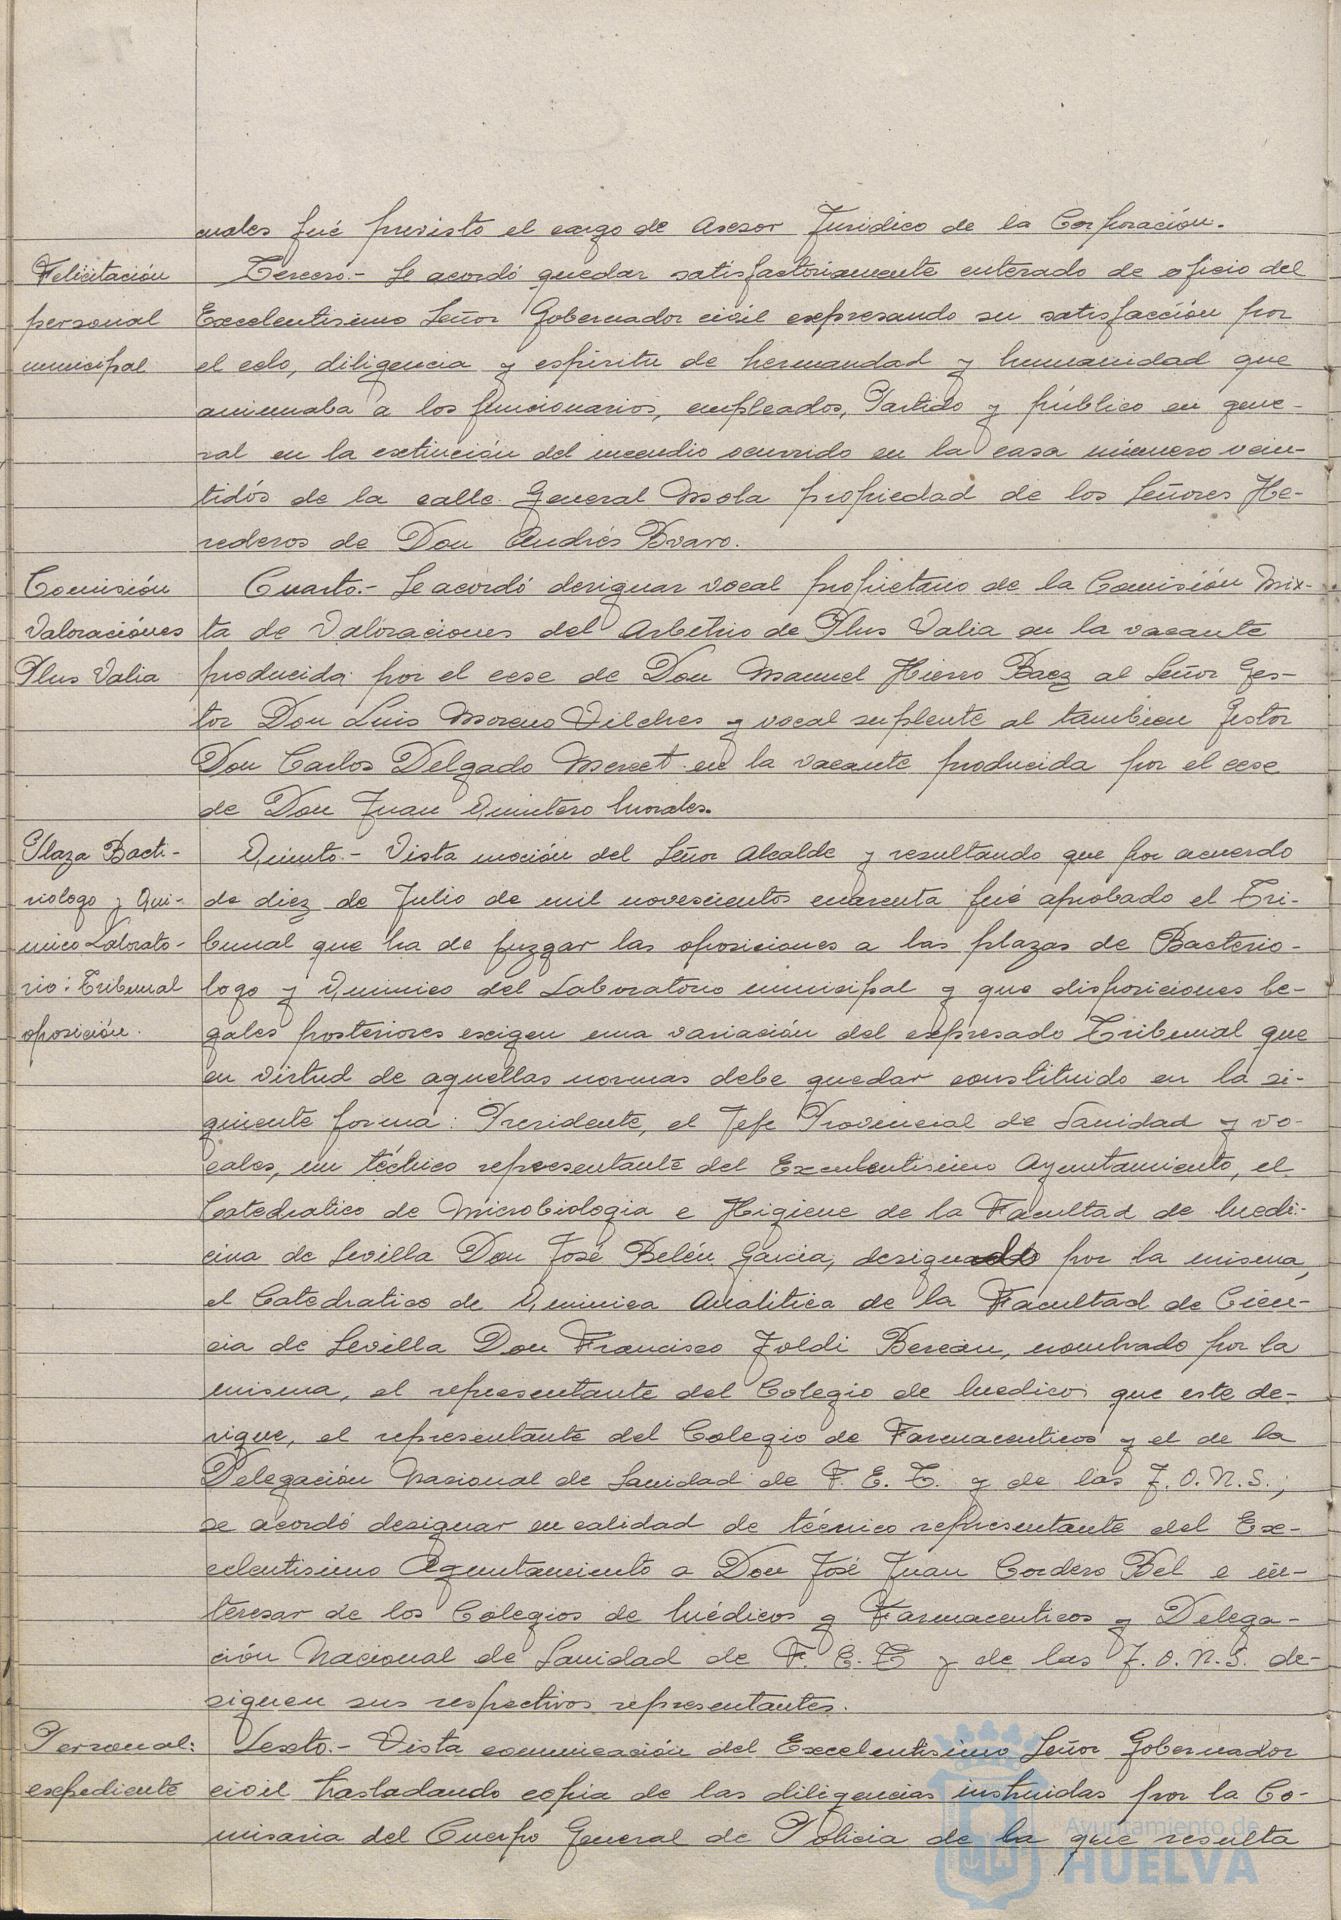 cuales fué previsto el cargo de Asesor Juridico de la Corporación.
Felicitación
personal
municipal
Tercero.- Se acordó quedar satisfactoriamente enterado de oficio del
Excelentisimo Señor Gobernador civil expresando su satisfacción por
el celo, diligencia y espiritu de hermandad y humanidad que
animaba a los funcionarios, empleados, Partido y público en gene-
ral en la extinción del incendio ocurrido en la casa número vein-
tidós de la calle General Mola propiedad de los Señores He-
rederos de Don Andrés Bravo.
Comisión
Valoraciónes
Plus Valia
Cuarto.- Se acordó designar vocal propietario de la Comisión Mix-
ta de Valoraciones del Arbitrio de Plus Valia en la vacante
producida por el cese de Don Manuel Hierro Baez al Señor Ges-
tor Don Luis Moreno Vilches y vocal suplente al tambien Gestor
Don Carlos Delgado Mercet en la vacante producida por el cese
de Don Juan Quintero Morales.
Plaza Bacte-
riologo y Qui-
mico Laborato-
rio: Tribunal
oposición.
Quinto.- Vista moción del Señor Alcalde y resultando que por acuerdo
de diez de Julio de mil novescientos cuarenta fué aprobado el Tri-
bunal que ha de juzgar las oposiciones a las plazas de Bacterio-
logo y Quimico del Laboratorio municipal y que disposiciones le-
gales posteriores exigen una variación del expresado Tribunal que
en virtud de aquellas normas debe quedar constituido en la si-
guiente forma: Presidente, el Jefe Provincial de Sanidad y vo-
cales, un técnico representante del Excelentisimo Ayuntamiento, el
Catedratico de Microbiologia e Higiene de la Facultad de Medi-
cina de Sevilla Don José Belén Garcia, designado por la misma,
el Catedratico de Quimica Analitica de la Facultad de Cien-
cia de Sevilla Don Francisco Yoldi Bereau, nombrado por la
misma, el representante del Colegio de Medicos que este de-
signe, el representante del Colegio de Farmaceuticos y el de la
Delegación Nacional de Sanidad de F. E. T. y de las J.O.N.S.;
se acordó designar en calidad de técnico representante del Ex-
celentisimo Ayuntamiento a Don José Juan Cordero Bel e in-
teresar de los Colegios de Médicos y Farmaceuticos y Delega-
ción Nacional de Sanidad de F. E. T y de las J.O.N.S. de-
signen sus respectivos representantes.
Personal:
expediente
Sexto.- Vista comunicación del Excelentisimo Señor Gobernador
civil trasladando copia de las diligencias instruidas por la Co-
misaria del Cuerpo General de Policia de la que resulta
Ayuntamiento de
HUELVA